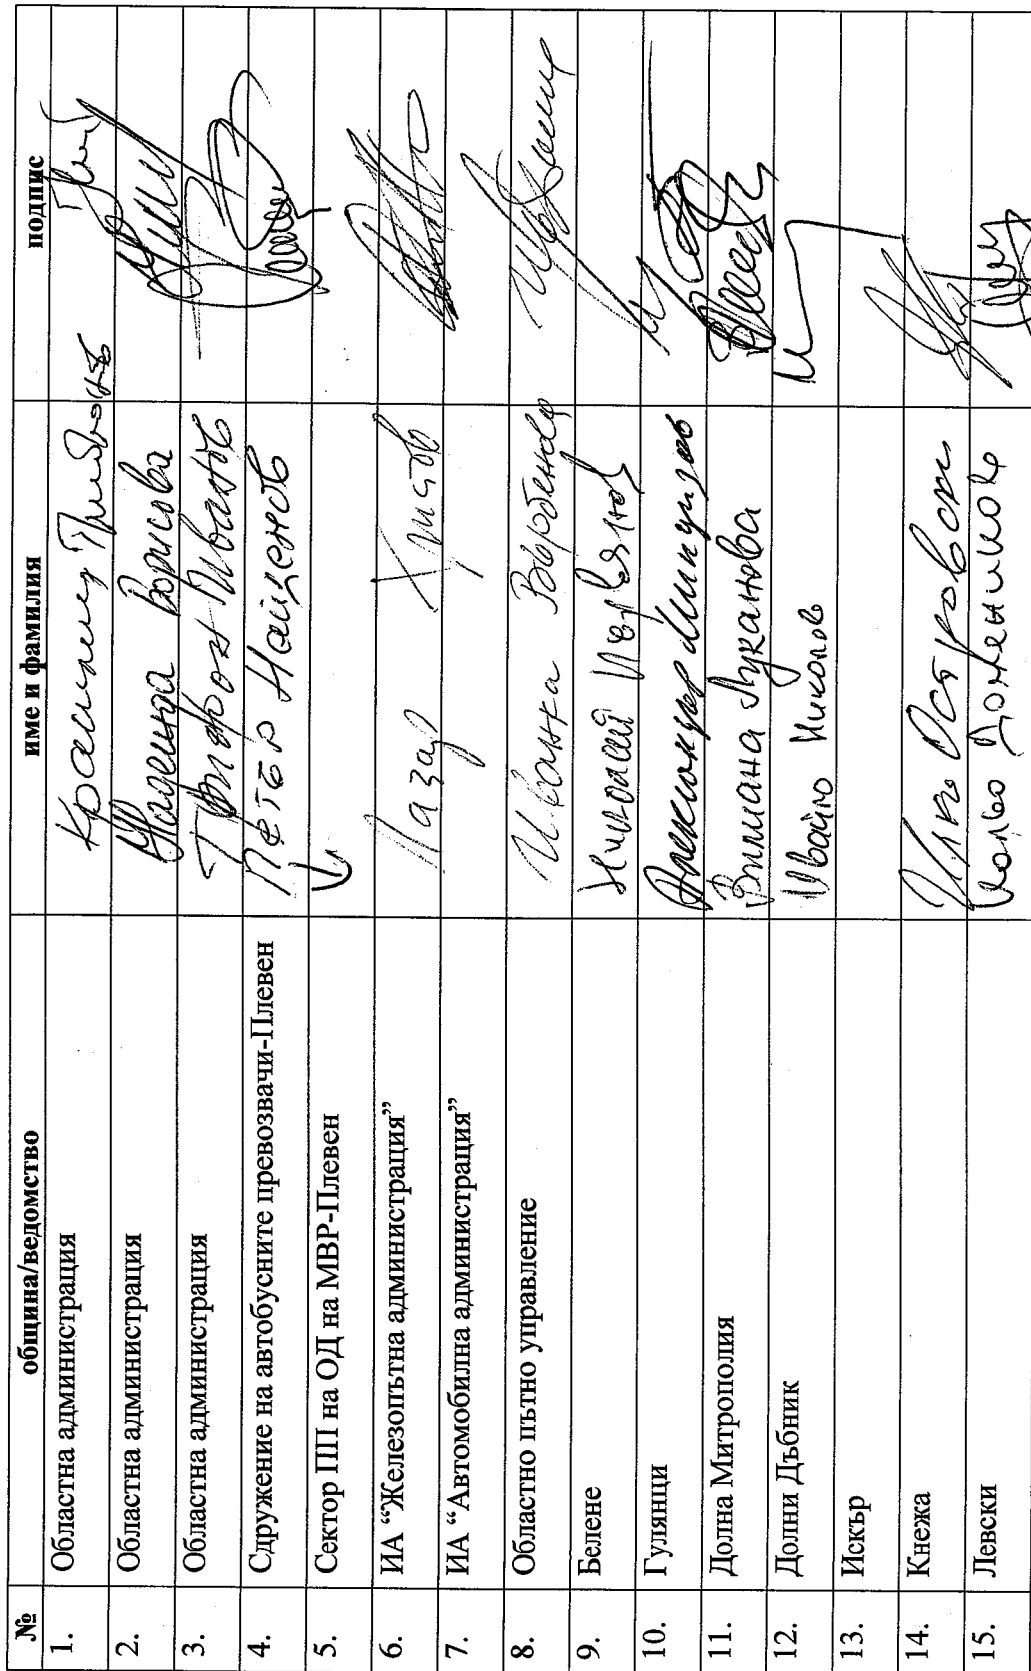 № община/ведомство име и фамилия подпис
1. Областна администрация Красимир
2. Областна администрация Борисова
3. Областна администрация Трифон Иванов
4. Сдружение на автобусните превозвачи-Плевен Петър Найденов
5. Сектор ПП на ОД на МВР-Плевен
6. ИА “Железопътна администрация” Лазар Христов
7. ИА “Автомобилна администрация”
8. Областно пътно управление Иванка Върбенова
9. Белене Николай
10. Гулянци Александър
11. Долна Митрополия Вилиана Луканова
12. Долни Дъбник Ивайло Николов
13. Искър
14. Кнежа Илко Островски
15. Левски